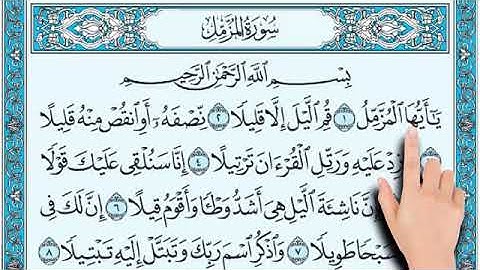 سُورَةُ الْمُزَّمِّلِ
بِسْمِ اللَّهِ الرَّحْمَٰنِ الرَّحِيمِ
يَٰٓأَيُّهَا الْمُزَّمِّلُ ۝١ قُمِ الَّيْلَ إِلَّا قَلِيلًا ۝٢ نِّصْفَهُۥٓ أَوِ انقُصْ مِنْهُ قَلِيلًا
زِدْ عَلَيْهِ وَرَتِّلِ الْقُرْءَانَ تَرْتِيلًا ۝٤ إِنَّا سَنُلْقِى عَلَيْكَ قَوْلًا
نَاشِئَةَ الَّيْلِ هِىَ أَشَدُّ وَطْـًٔا وَأَقْوَمُ قِيلًا ۝٦ إِنَّ لَكَ فِى
سَبْحًا طَوِيلًا ۝٧ وَاذْكُرِ اسْمَ رَبِّكَ وَتَبَتَّلْ إِلَيْهِ تَبْتِيلًا ۝٨